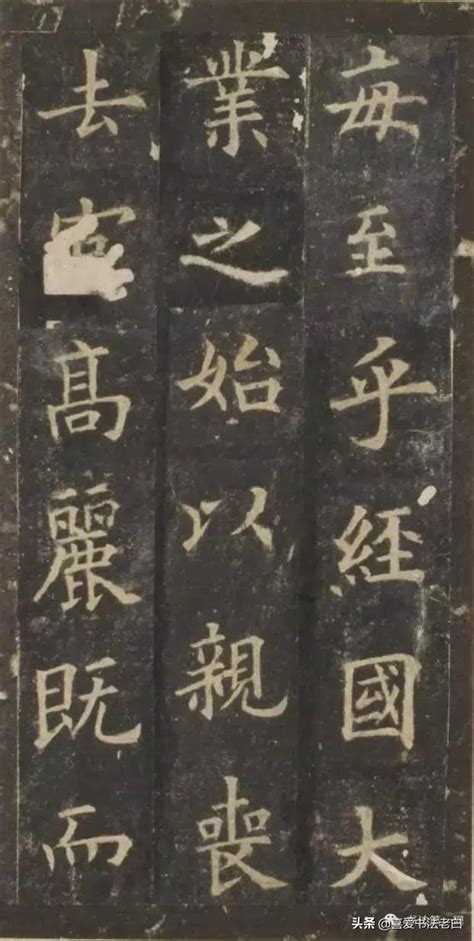 毎至乎經國大
業之始以親喪
去高麗既而
头条 @喜爱书法老白